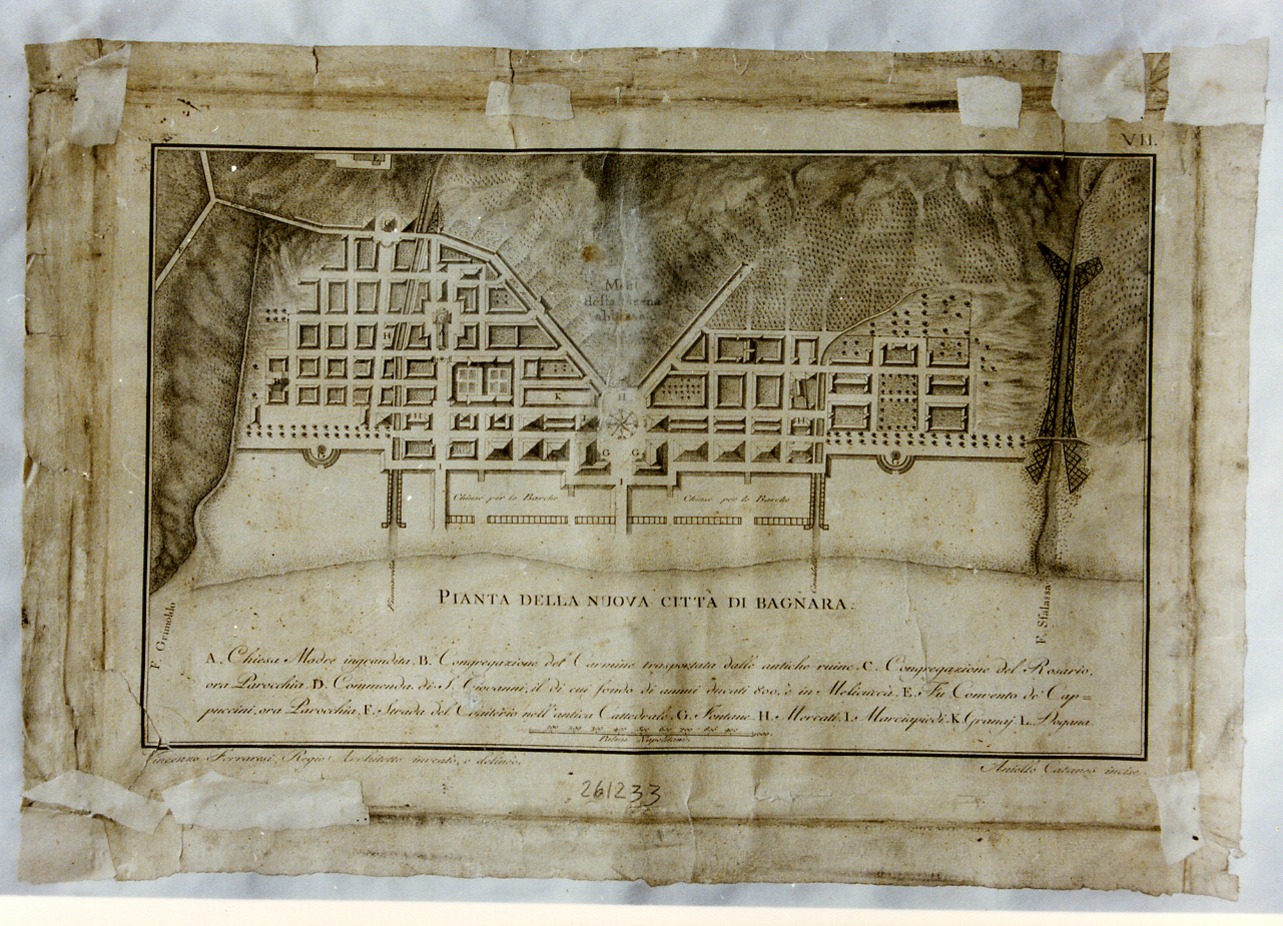 VII.
K
H
G G
Chiuse per le Barche
Chiuse per le Barche
PIANTA DELLA NUOVA CITTÀ DI BAGNARA.
F. Grimoldo
F. Sfalassa
A. Chiesa Madre ingrandita. B. Congregazione del Carmine trasportata dalle antiche ruine. C. Congregazione del Rosario,
ora Parocchia. D. Commenda di S. Giovanni, il di cui fondo di annui ducati 800, è in Melicuccà. E. Fù Convento de' Cap=
puccini, ora Parocchia. F. Strada del nell'antica Cattedrale. G. Fontane. H. Mercati. I. Marciapiedi. K. Granaj. L. Dogana.
100 200 300 400 500 600 700 800 900 1000
Palmi Napolitani.
Vincenzo Ferraresi, Regio Architetto inventò, e delineò.
Aniello Cataneo incise.
261233